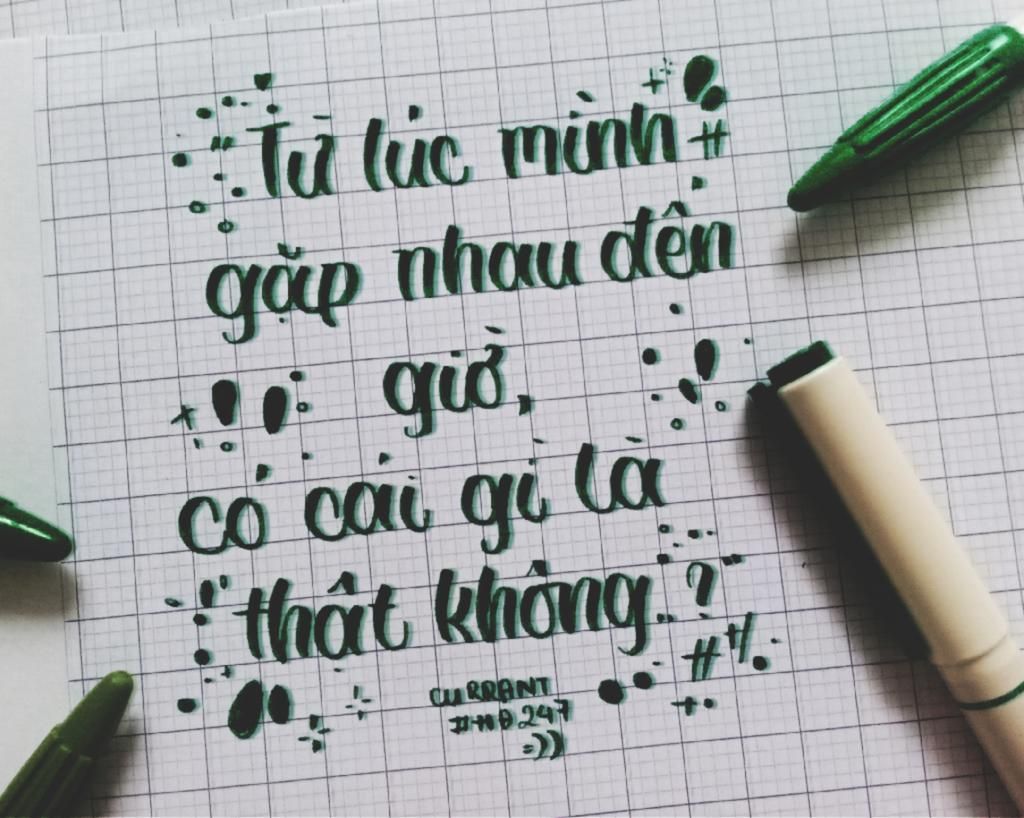 "Từ lúc mình
gặp nhau đến
giờ,
có cái gì là
thật không..?"
CURRANT
#HĐ.247
=))